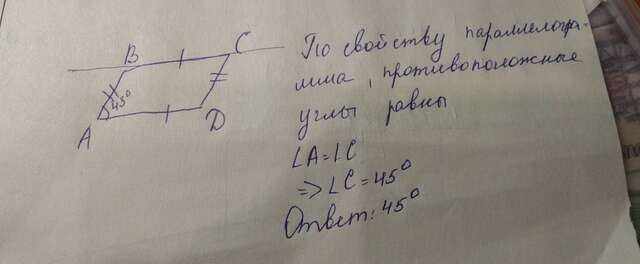 B
C
45°
A
D
По свойству параллелогра-
мма, противоположные
углы равны
∠A=∠C
=> ∠C=45°
Ответ: 45°